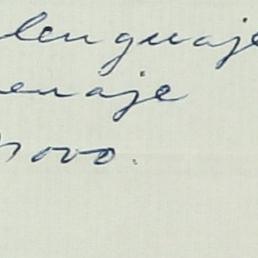 lenguaje
enaje
novo.